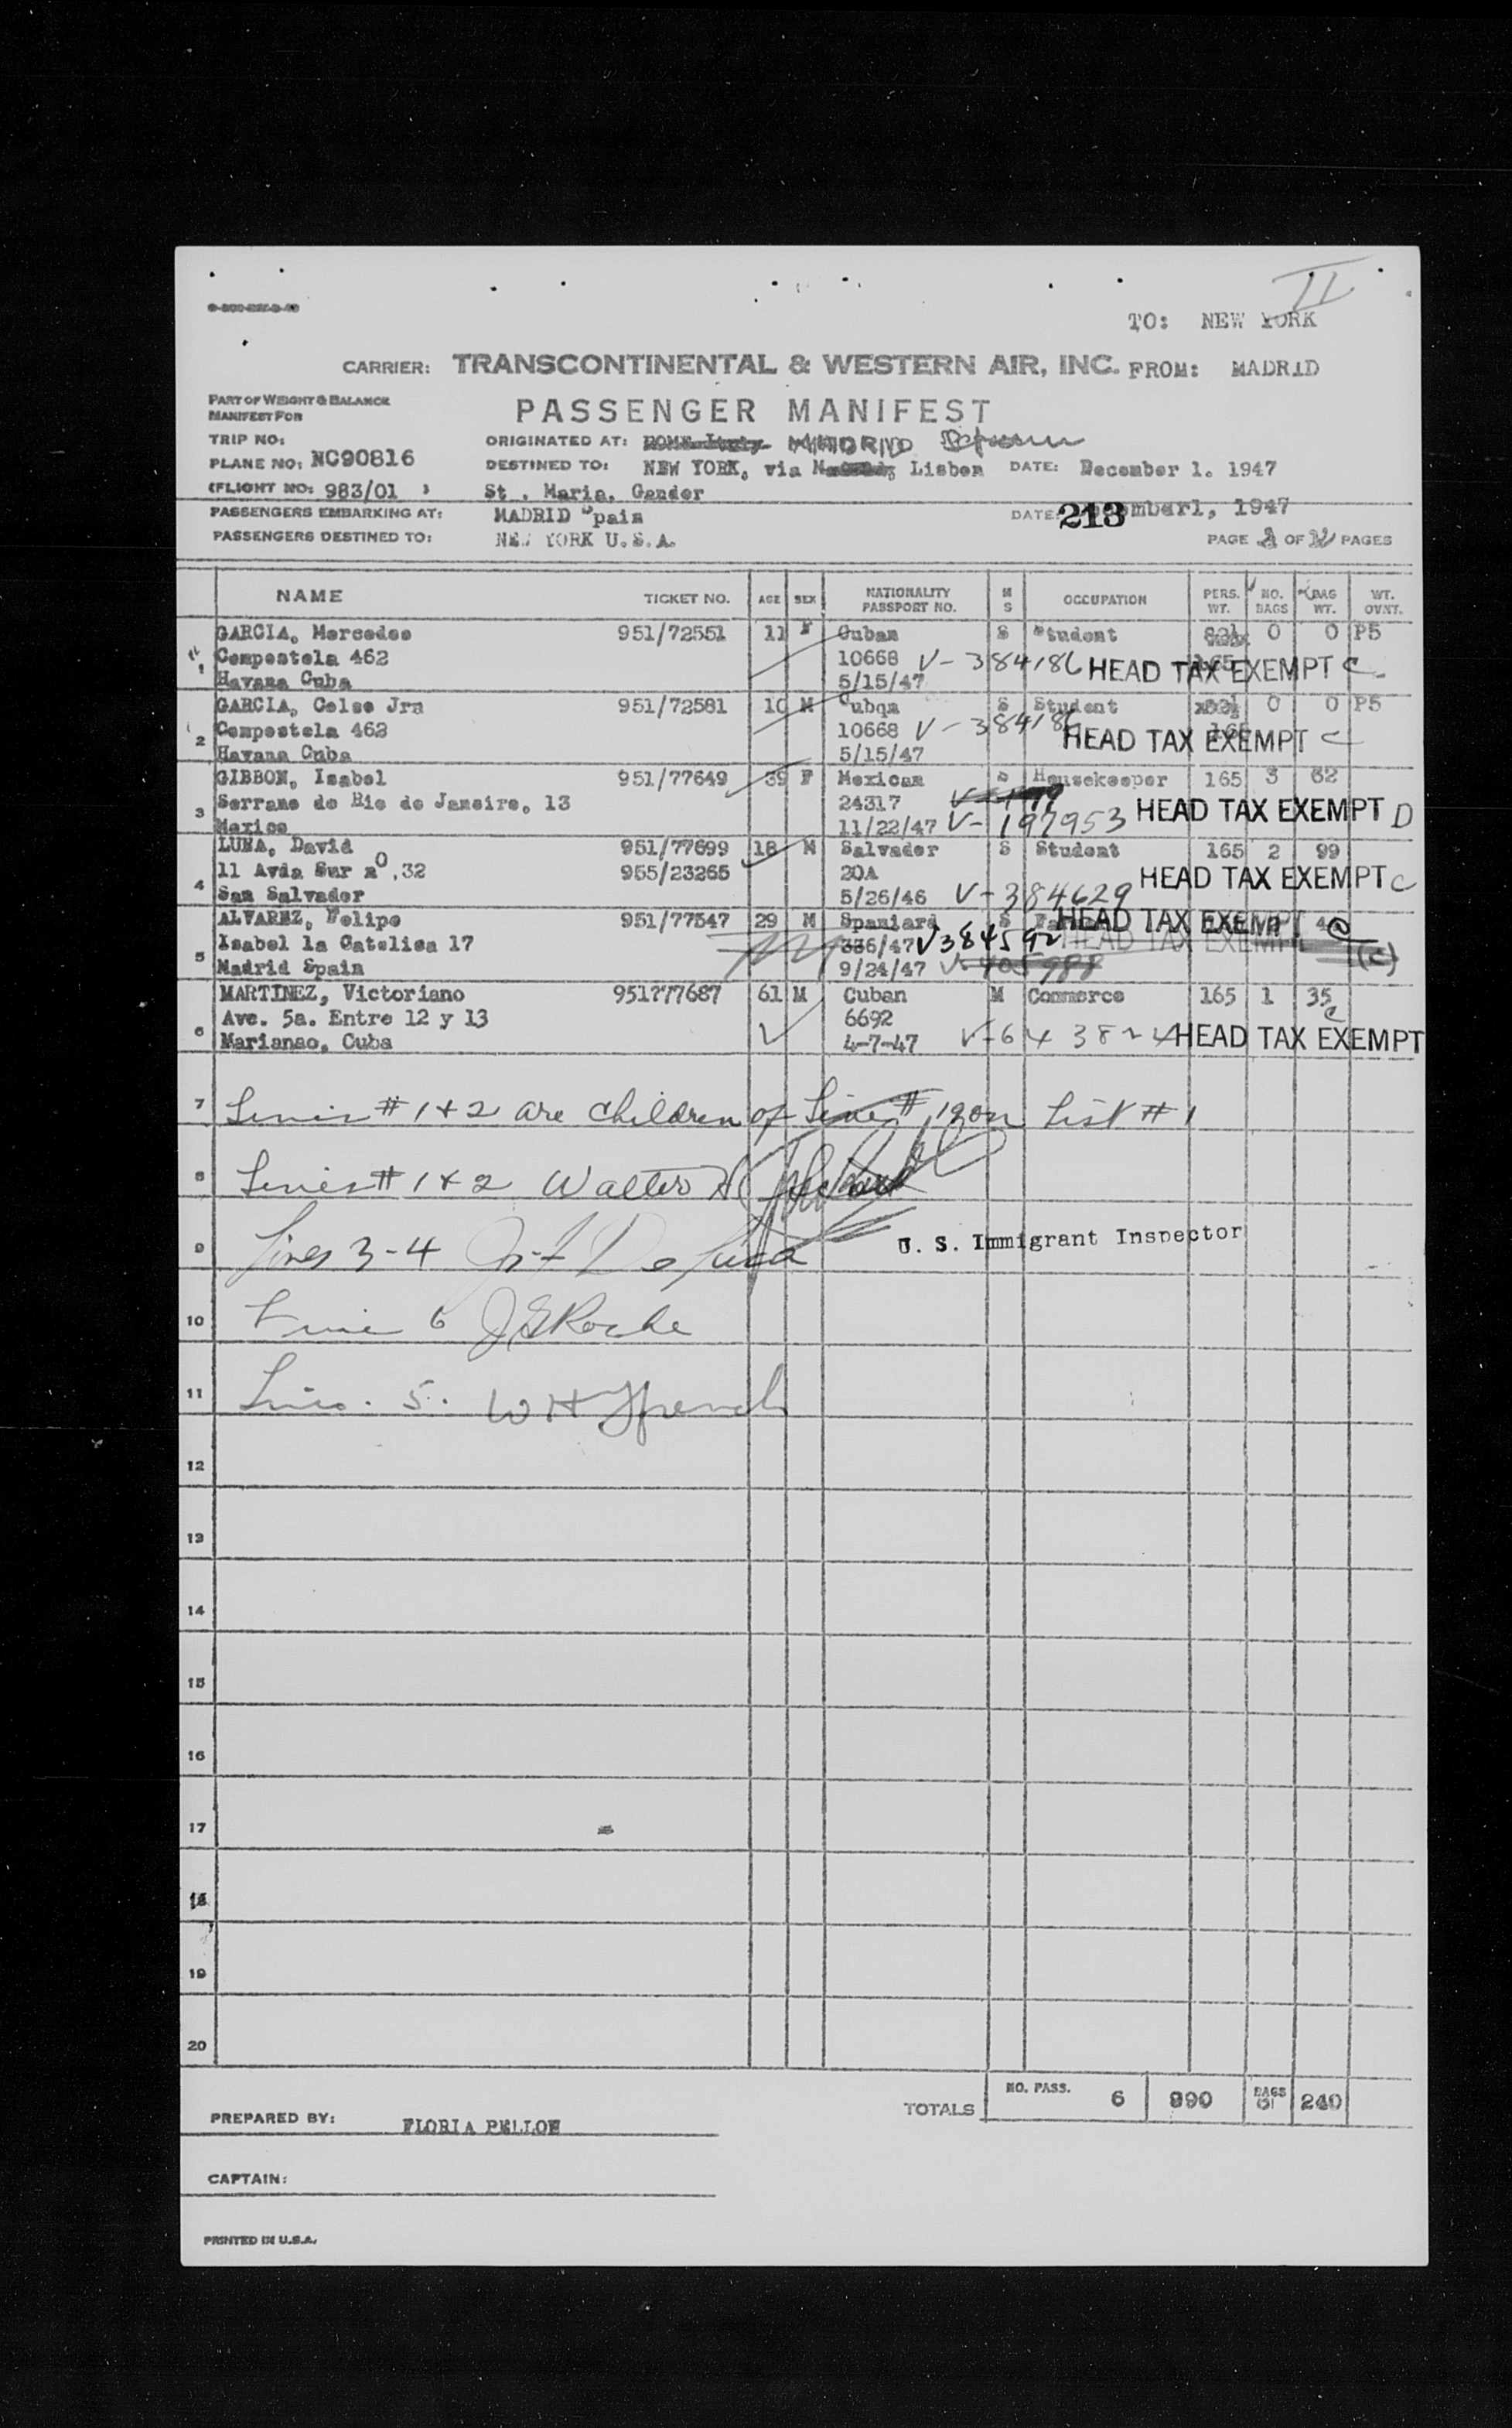 II
TO: NEW YORK
CARRIER: TRANSCONTINENTAL & WESTERN AIR, INC. FROM: MADRID
PART OF WEIGHT & BALANCE
MANIFEST FOR
PASSENGER MANIFEST
TRIP NO:
ORIGINATED AT: MADRID
PLANE NO: NC90816
DESTINED TO: NEW YORK, via Lisbon DATE: December 1. 1947
(FLIGHT NO: 983/01 )
St . Maria. Gander
PASSENGERS EMBARKING AT: MADRID Spain DATE: 213 mber1, 1947
PASSENGERS DESTINED TO: NEW YORK U.S.A. PAGE OF PAGES
NAME TICKET NO. AGE SEX NATIONALITY PASSPORT NO. M S OCCUPATION PERS. WT. NO. BAGS BAG WT. WT. OVNT.
1 GARCIA, Mercedes 951/72551 11 F Cuban S Student 82½ 0 0 P5
Compostela 462 10668 V-384186 HEAD TAX EXEMPT C
Havana Cuba 5/15/47
2 GARCIA, Celso Jra 951/72581 10 M Cubqa S Student 0 0 P5
Compostela 462 10668 V-384186 HEAD TAX EXEMPT C
Havana Cuba 5/15/47
3 GIBBON, Isabel 951/77649 39 F Mexican S Housekeeper 165 3 62
Serrano do Rio de Janeiro, 13 24317 HEAD TAX EXEMPT D
Mexico 11/22/47 V-197953
4 LUNA, David 951/77699 18 M Salvador S Student 165 2 99
11 Avda Sur nO,32 955/23265 20A HEAD TAX EXEMPT C
San Salvador 5/26/46 V-384629
5 ALVAREZ, Felipe 951/77547 29 M Spaniard S HEAD TAX EXEMPT
Isabel la Catolica 17 336/47 V384592 HEAD TAX EXEMPT (C)
Madrid Spain 9/24/47 V-405988
6 MARTINEZ, Victoriano 951?77687 61 M Cuban M Commerce 165 1 35
Ave. 5a. Entre 12 y 13 6692 C
Marianao, Cuba 4-7-47 V-643824 HEAD TAX EXEMPT
7 Lines # 1+2 are children of Line # 19 on List # 1
8 Lines # 1+2 Walter
9 Lines 3-4 De Luca U. S. Immigrant Inspector
10 Line 6 J.E. Roche
11 Line. 5. W H French
12
13
14
15
16
17
18
19
20
TOTALS NO. PASS. 6 990 BAGS 6 240
PREPARED BY: FLORIA PELLON
CAPTAIN:
PRINTED IN U.S.A.